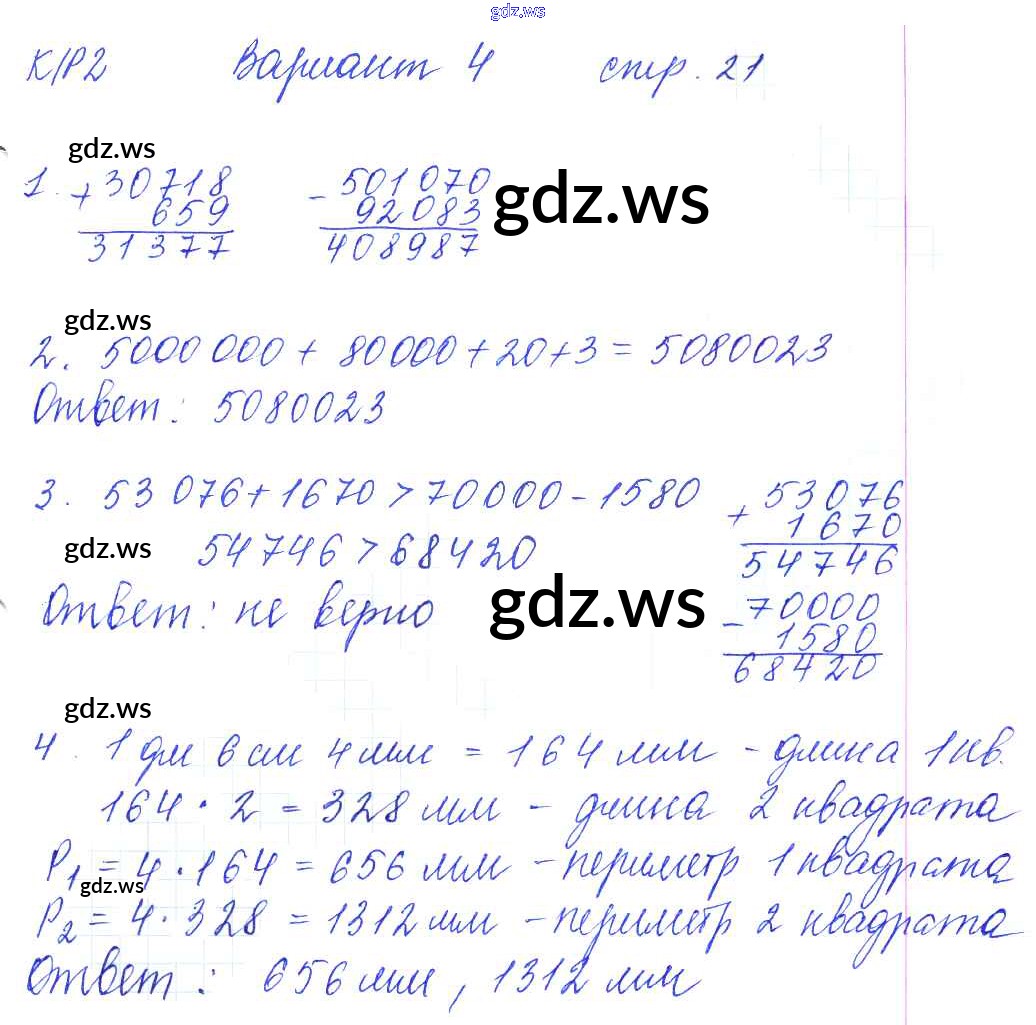 gdz.ws
К/Р2 Вариант 4 стр. 21
gdz.ws
1. + 30718 - 501070 gdz.ws
659 92083
31377 408987
gdz.ws
2. 5000 000 + 80000 + 20 + 3 = 5080023
Ответ: 5080023
3. 53 076 + 1670 > 70000 - 1580 + 53076
1670
gdz.ws 54746 > 68420 54746
Ответ: не верно gdz.ws - 70000
1580
68420
gdz.ws
4. 1 дм 6 см 4 мм = 164 мм - длина 1 кв.
164 · 2 = 328 мм - длина 2 квадрата
P1 = 4 · 164 = 656 мм - периметр 1 квадрата
gdz.ws
P2 = 4 · 328 = 1312 мм - периметр 2 квадрата
Ответ: 656 мм, 1312 мм